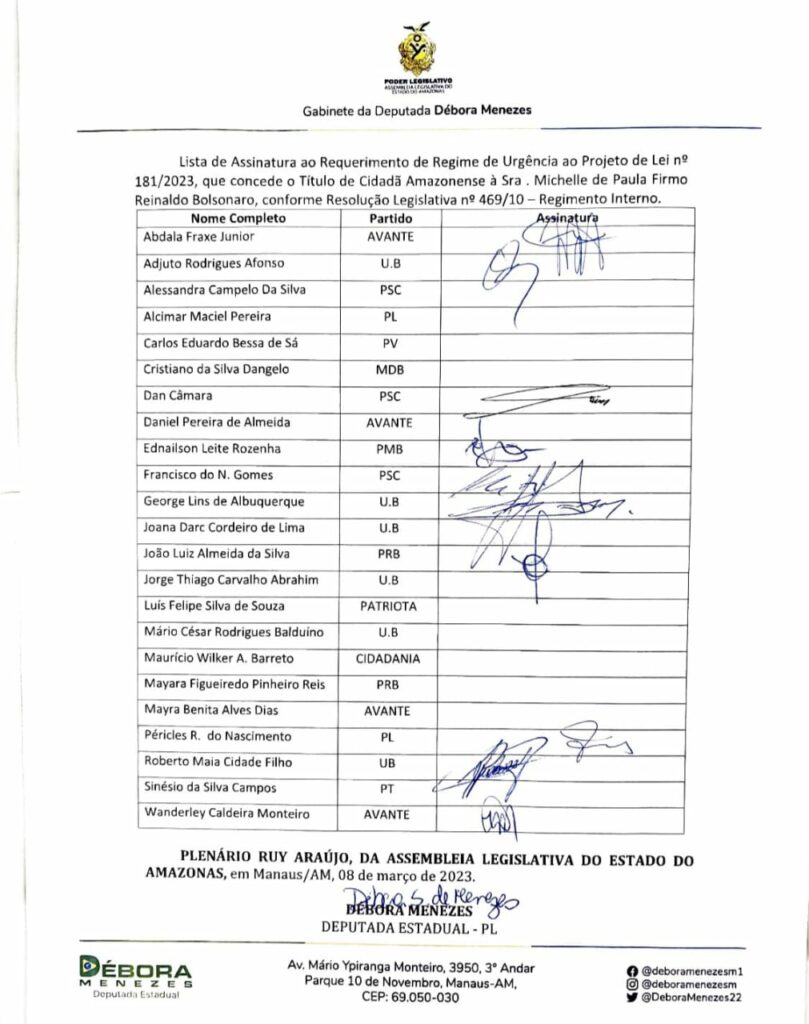 PODER LEGISLATIVO
ASSEMBLEIA LEGISLATIVA DO
ESTADO DO AMAZONAS
Gabinete da Deputada Débora Menezes
Lista de Assinatura ao Requerimento de Regime de Urgência ao Projeto de Lei nº
181/2023, que concede o Título de Cidadã Amazonense à Sra . Michelle de Paula Firmo
Reinaldo Bolsonaro, conforme Resolução Legislativa nº 469/10 – Regimento Interno.
Nome Completo Partido Assinatura
Abdala Fraxe Junior AVANTE
Adjuto Rodrigues Afonso U.B
Alessandra Campelo Da Silva PSC
Alcimar Maciel Pereira PL
Carlos Eduardo Bessa de Sá PV
Cristiano da Silva Dangelo MDB
Dan Câmara PSC
Daniel Pereira de Almeida AVANTE
Ednailson Leite Rozenha PMB
Francisco do N. Gomes PSC
George Lins de Albuquerque U.B
Joana Darc Cordeiro de Lima U.B
João Luiz Almeida da Silva PRB
Jorge Thiago Carvalho Abrahim U.B
Luís Felipe Silva de Souza PATRIOTA
Mário César Rodrigues Balduíno U.B
Maurício Wilker A. Barreto CIDADANIA
Mayara Figueiredo Pinheiro Reis PRB
Mayra Benita Alves Dias AVANTE
Péricles R. do Nascimento PL
Roberto Maia Cidade Filho UB
Sinésio da Silva Campos PT
Wanderley Caldeira Monteiro AVANTE
PLENÁRIO RUY ARAÚJO, DA ASSEMBLEIA LEGISLATIVA DO ESTADO DO
AMAZONAS, em Manaus/AM, 08 de março de 2023.
Débora S. de Menezes
DÉBORA MENEZES
DEPUTADA ESTADUAL - PL
DÉBORA
MENEZES
Deputada Estadual
Av. Mário Ypiranga Monteiro, 3950, 3° Andar
Parque 10 de Novembro, Manaus-AM,
CEP: 69.050-030
@deboramenezesm1
@deboramenezesm
@DeboraMenezes22